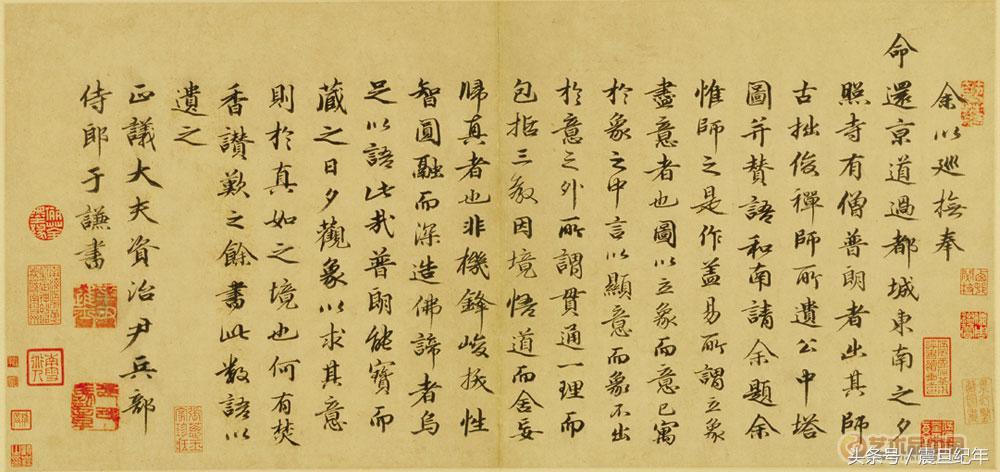 余以巡撫奉
命還京道過都城東南之夕
照寺有僧普朗者出其師
古拙俊禪師所遺公中塔
圖并贊語和南請余題余
惟師之是作盖易所謂立象
盡意者也圖以立象而意已寓
於象之中言以顯意而象不出
於意之外所謂貫通一理而
包括三教因境悟道而舍妄
歸真者也非機鋒峻拔性
智圓融而深造佛諦者烏
足以語此哉普朗能寶而
藏之日夕觀象以求其意
則於真如之境也何有焚
香讃歎之餘書此数語以
遺之
正議大夫資治尹兵部
侍郎于謙書
头条号/震旦纪年